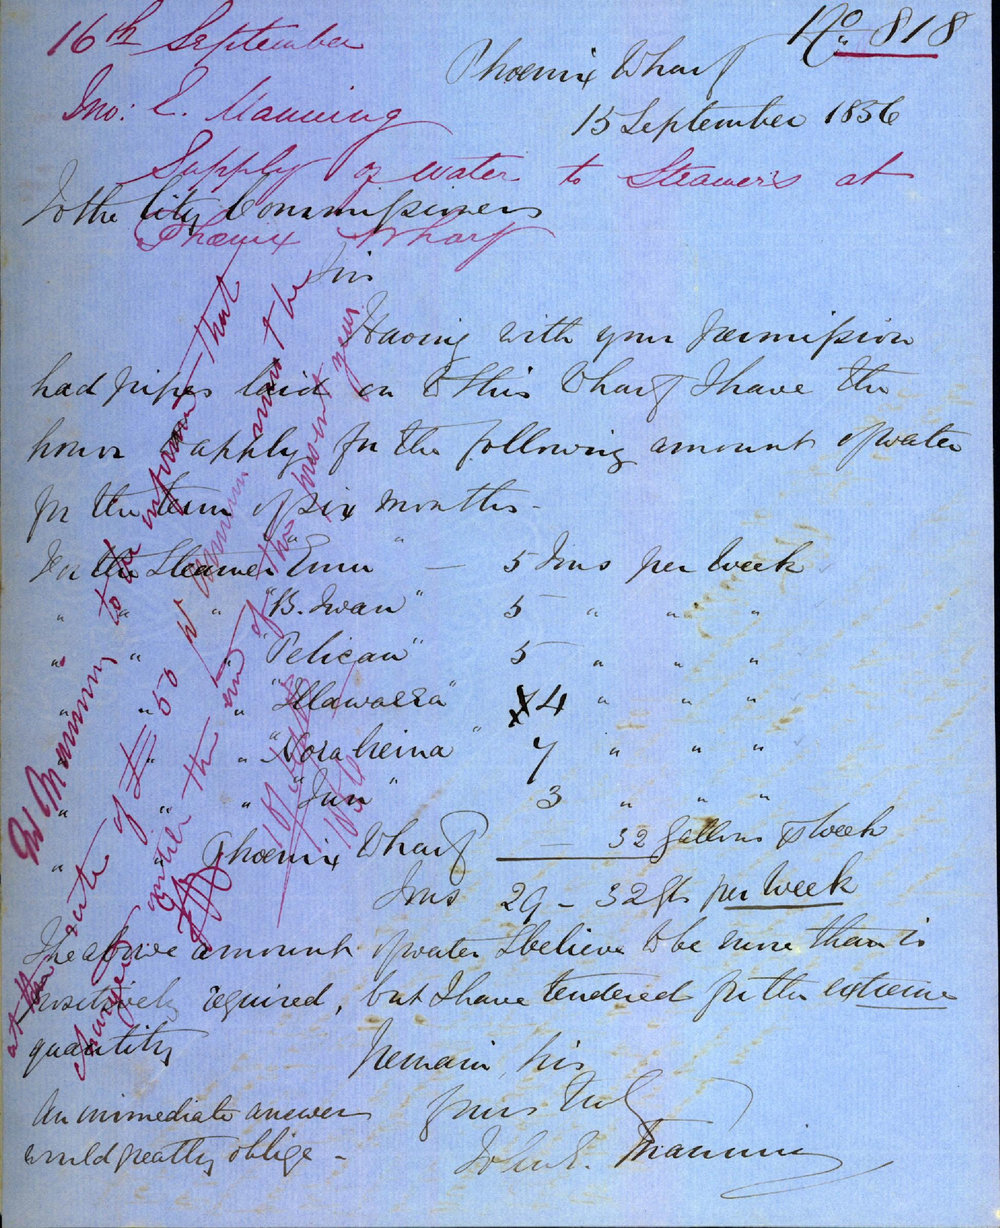 No 818
16th September
Phoenix Wharf
Jno: E. Manning
15 September 1856
Supply of water to Steamers at
Phoenix Wharf
To the City Commissioners
Sirs
Having with your permission
had pipes laid on to this Wharf I have the
honor apply for the following amount of water
for the term of six months -
For the Steamer "Emu" — 5 Tons per Week
" " " "B. Swan" 5 " " "
" " " "Pelican" 5 " " "
" " " "Illawarra" 4 " " "
" " " " 7 " " "
" " " " 3 " " "
" " Phoenix Wharf — 32 Gallons pr Week
Tons 29 - 32 per Week
The above amount of water I believe to be more than is
positively required, but I have tendered for the extreme
quantity
I remain, Sirs
Yours
John E. Manning
An immediate answer
would greatly oblige -
Mr Manning to be informed that
at the rate of £50 pr annum must be
charged until the end of the present year